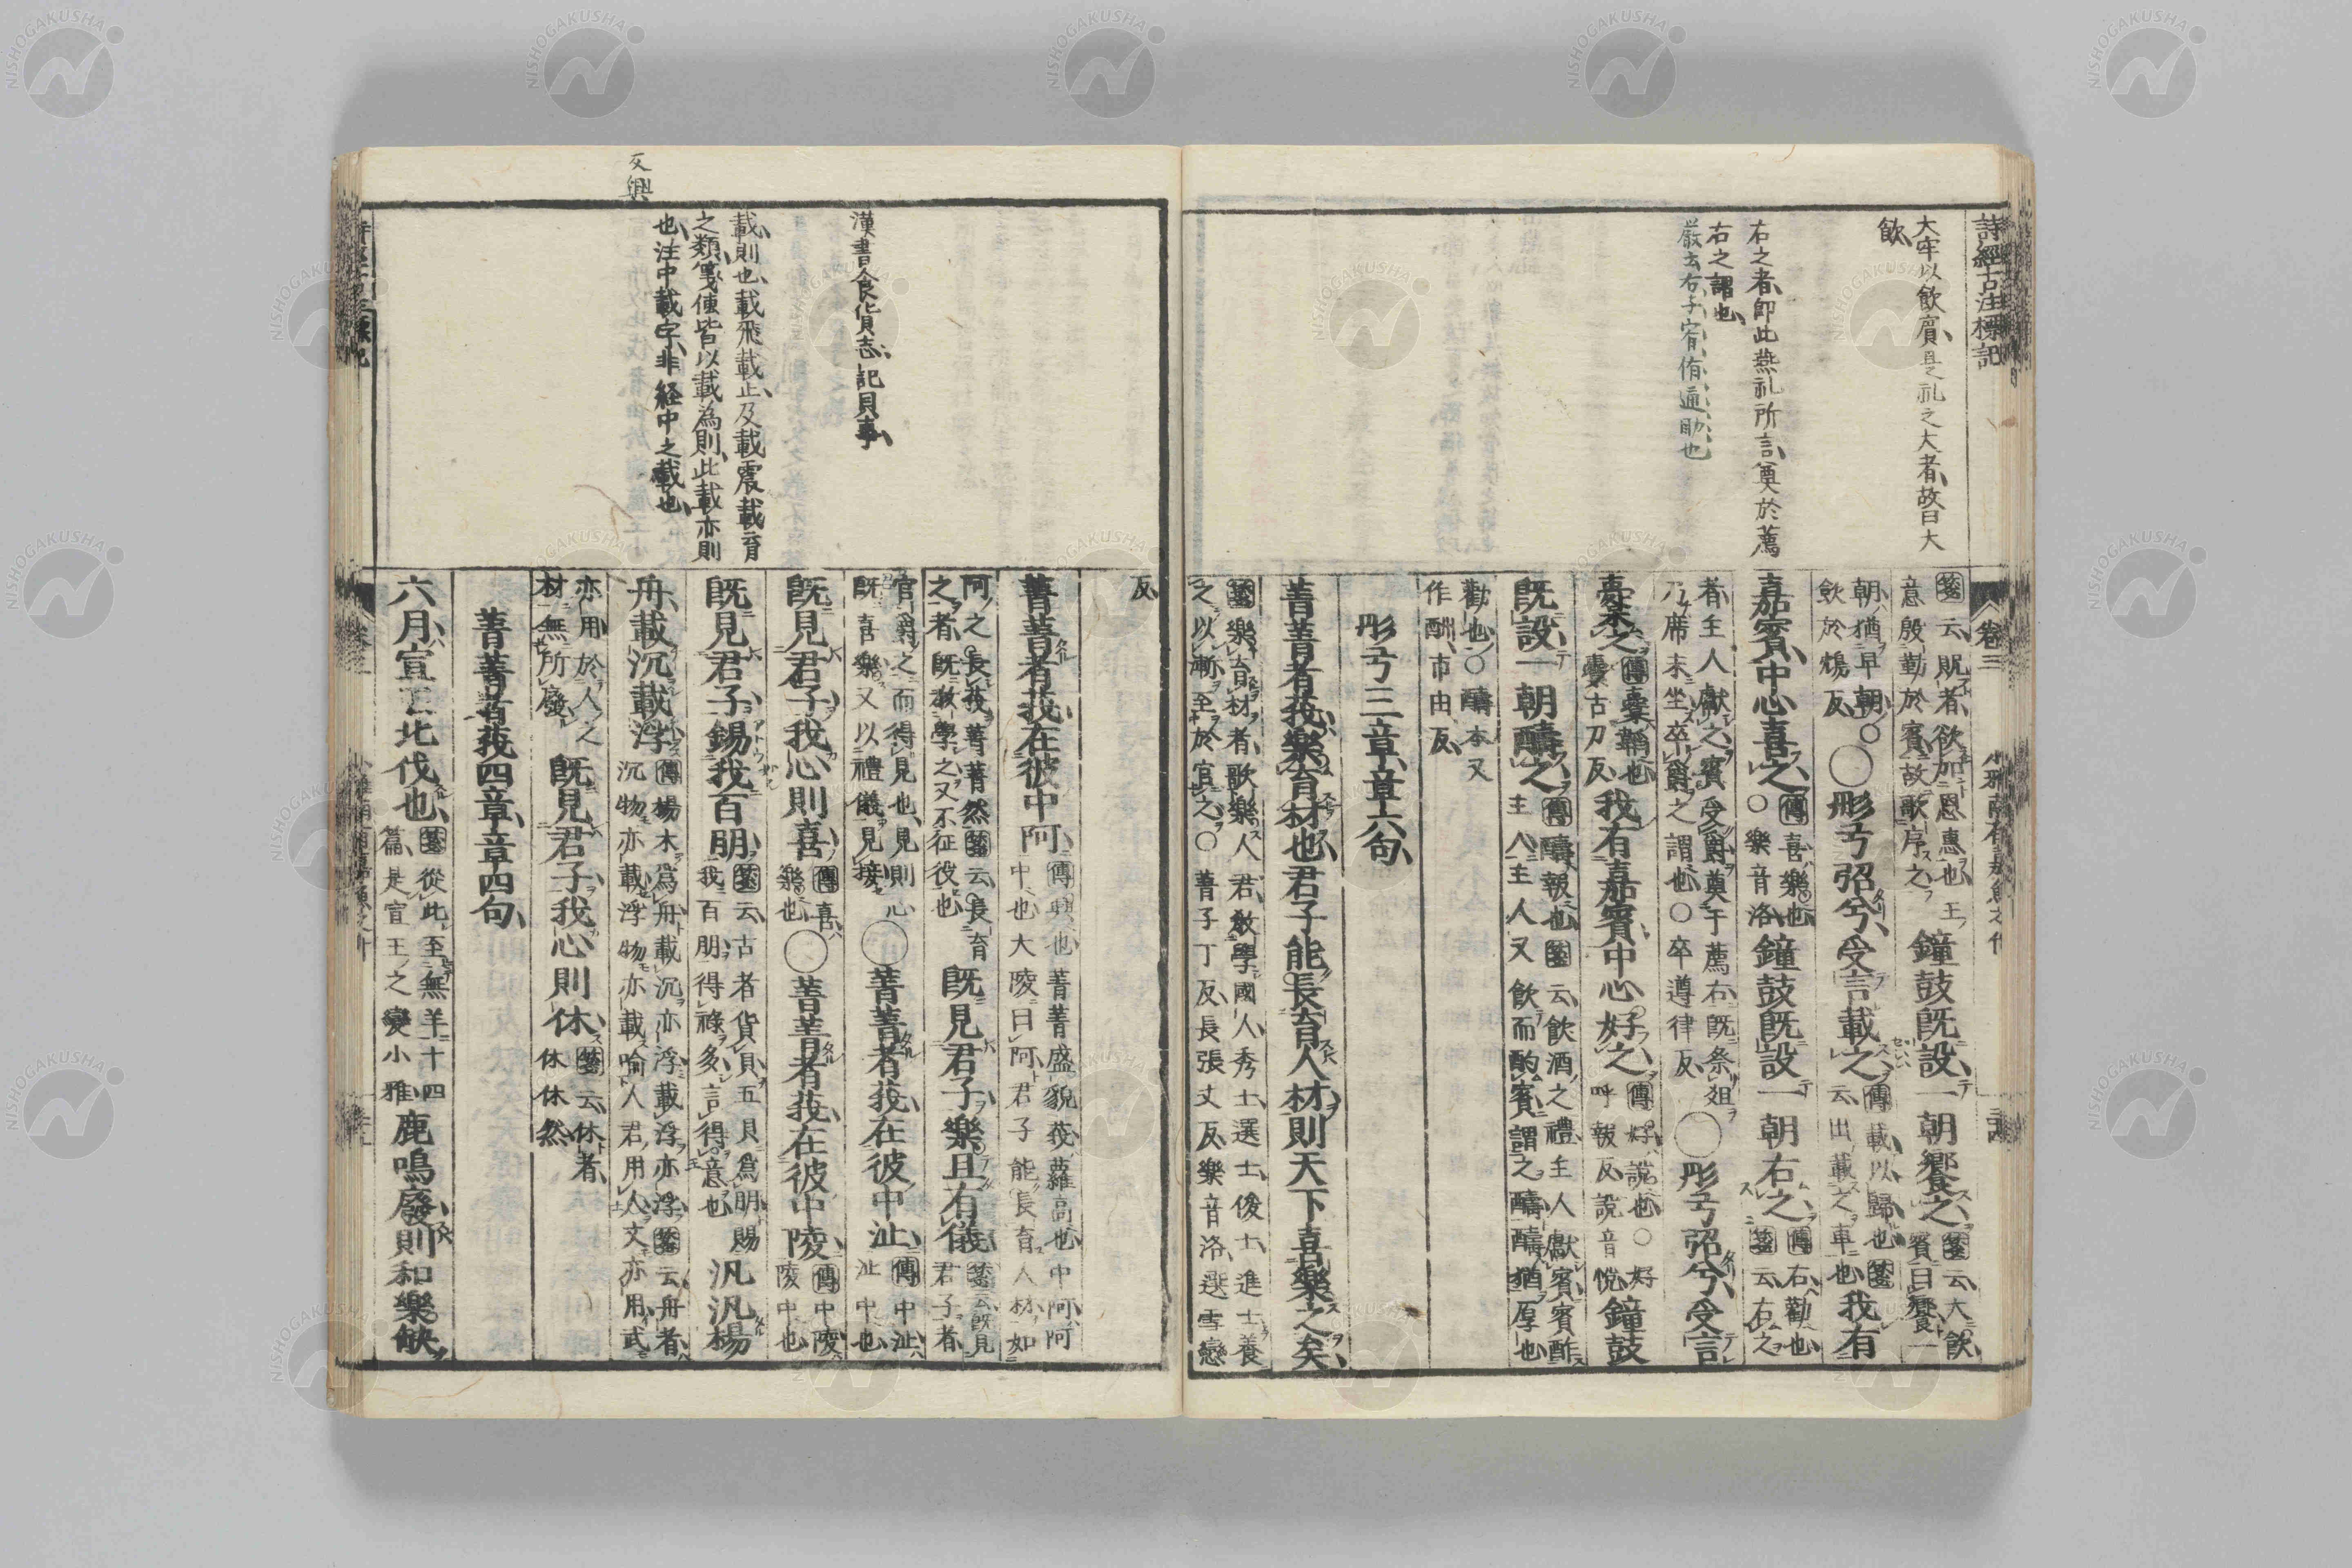 詩經古注標記
大牢以飲賓、是礼之大者、故曰大
飲、
右之者、即此燕礼所言、奠於薦
右之謂也、
厳云右、于宥侑通助也
卷三
小雅南有嘉魚之什
箋云貺者、欲加恩惠也王
意殷勤於賓、故歌序之
鐘鼓既設、一朝饗之、
箋云大飲
賓曰饗一
朝、猶早朝○
飲於鴆反、
○彤弓弨兮、受言載之、
傳載以歸也箋
云出載之車也
我有
嘉賓、中心喜之、
傳喜樂也
○樂音洛、
鐘鼓既設一朝右之、
傳右勸也
箋云右之
者、主人獻之賓受爵、奠于薦右既祭俎
乃席末坐卒爵之謂也○卒遵律反、
○彤弓弨兮、受言
櫜之、
傳櫜韜也
櫜古刀反、
我有嘉賓、中心好之、
傳好說也○好
呼報反說音悅、
鐘鼓
既設一朝醻之、
傳醻報也箋云飲酒之禮主人獻賓賓酢
主人主人又飲而酌賓謂之醻醻猶厚也
勸也○醻本又
作酬、市由反、
彤弓三章、章六句、
菁菁者莪、樂育材也、君子能長育人材、則天下喜樂之矣、
箋樂育材者、歌樂人君、敎學國人、秀士選士、俊士、進士養
之、以漸至於官之○菁子丁反、長張丈反、樂音洛、選雪戀
反、
菁菁者莪、在彼中阿、
傳興也菁菁盛貌莪蘿蒿也中阿、阿
中也大陵曰阿君子能長育人材如
阿之長莪菁菁然箋云長育
之者、既敎學之又不征役也
既見君子、樂且有儀、
箋云既見
君子者、
官爵之而得見也、見則心
既喜樂又以禮儀見接
○菁菁者莪、在彼中沚、
傳中沚
沚中也
既見君子、我心則喜、
傳喜
樂也
○菁菁者莪、在彼中陵、
傳中陵
陵中也
既見君子、錫我百朋、
箋云、古者貨貝五貝爲朋賜
我百朋得祿多言得意也
汎汎楊
舟、載沉載浮、
傳楊木爲舟載沉亦浮載浮亦浮箋云舟者、
沉物亦載浮物亦載喻人君用人文亦用武
亦用於人之
材無所廢
既見君子、我心則休、
箋云休者、
休休然
菁菁者莪四章、章四句、
六月宣王北伐也、
箋從此至無羊十四
篇、是宣王之變小雅、
鹿鳴廢、則和樂缺
漢書食貨志、記貝事、
載則也、載飛載止、及載震載育
之類、箋傳皆以載為則、此載亦則
也、注中載字、非経中之載也、
又興